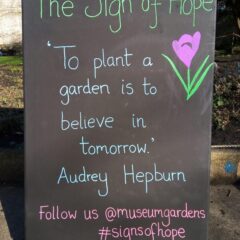 The Sign of Hope
'To plant a
garden is to
believe in
tomorrow.'
Audrey Hepburn
Follow us @museumgardens
#signsofhope